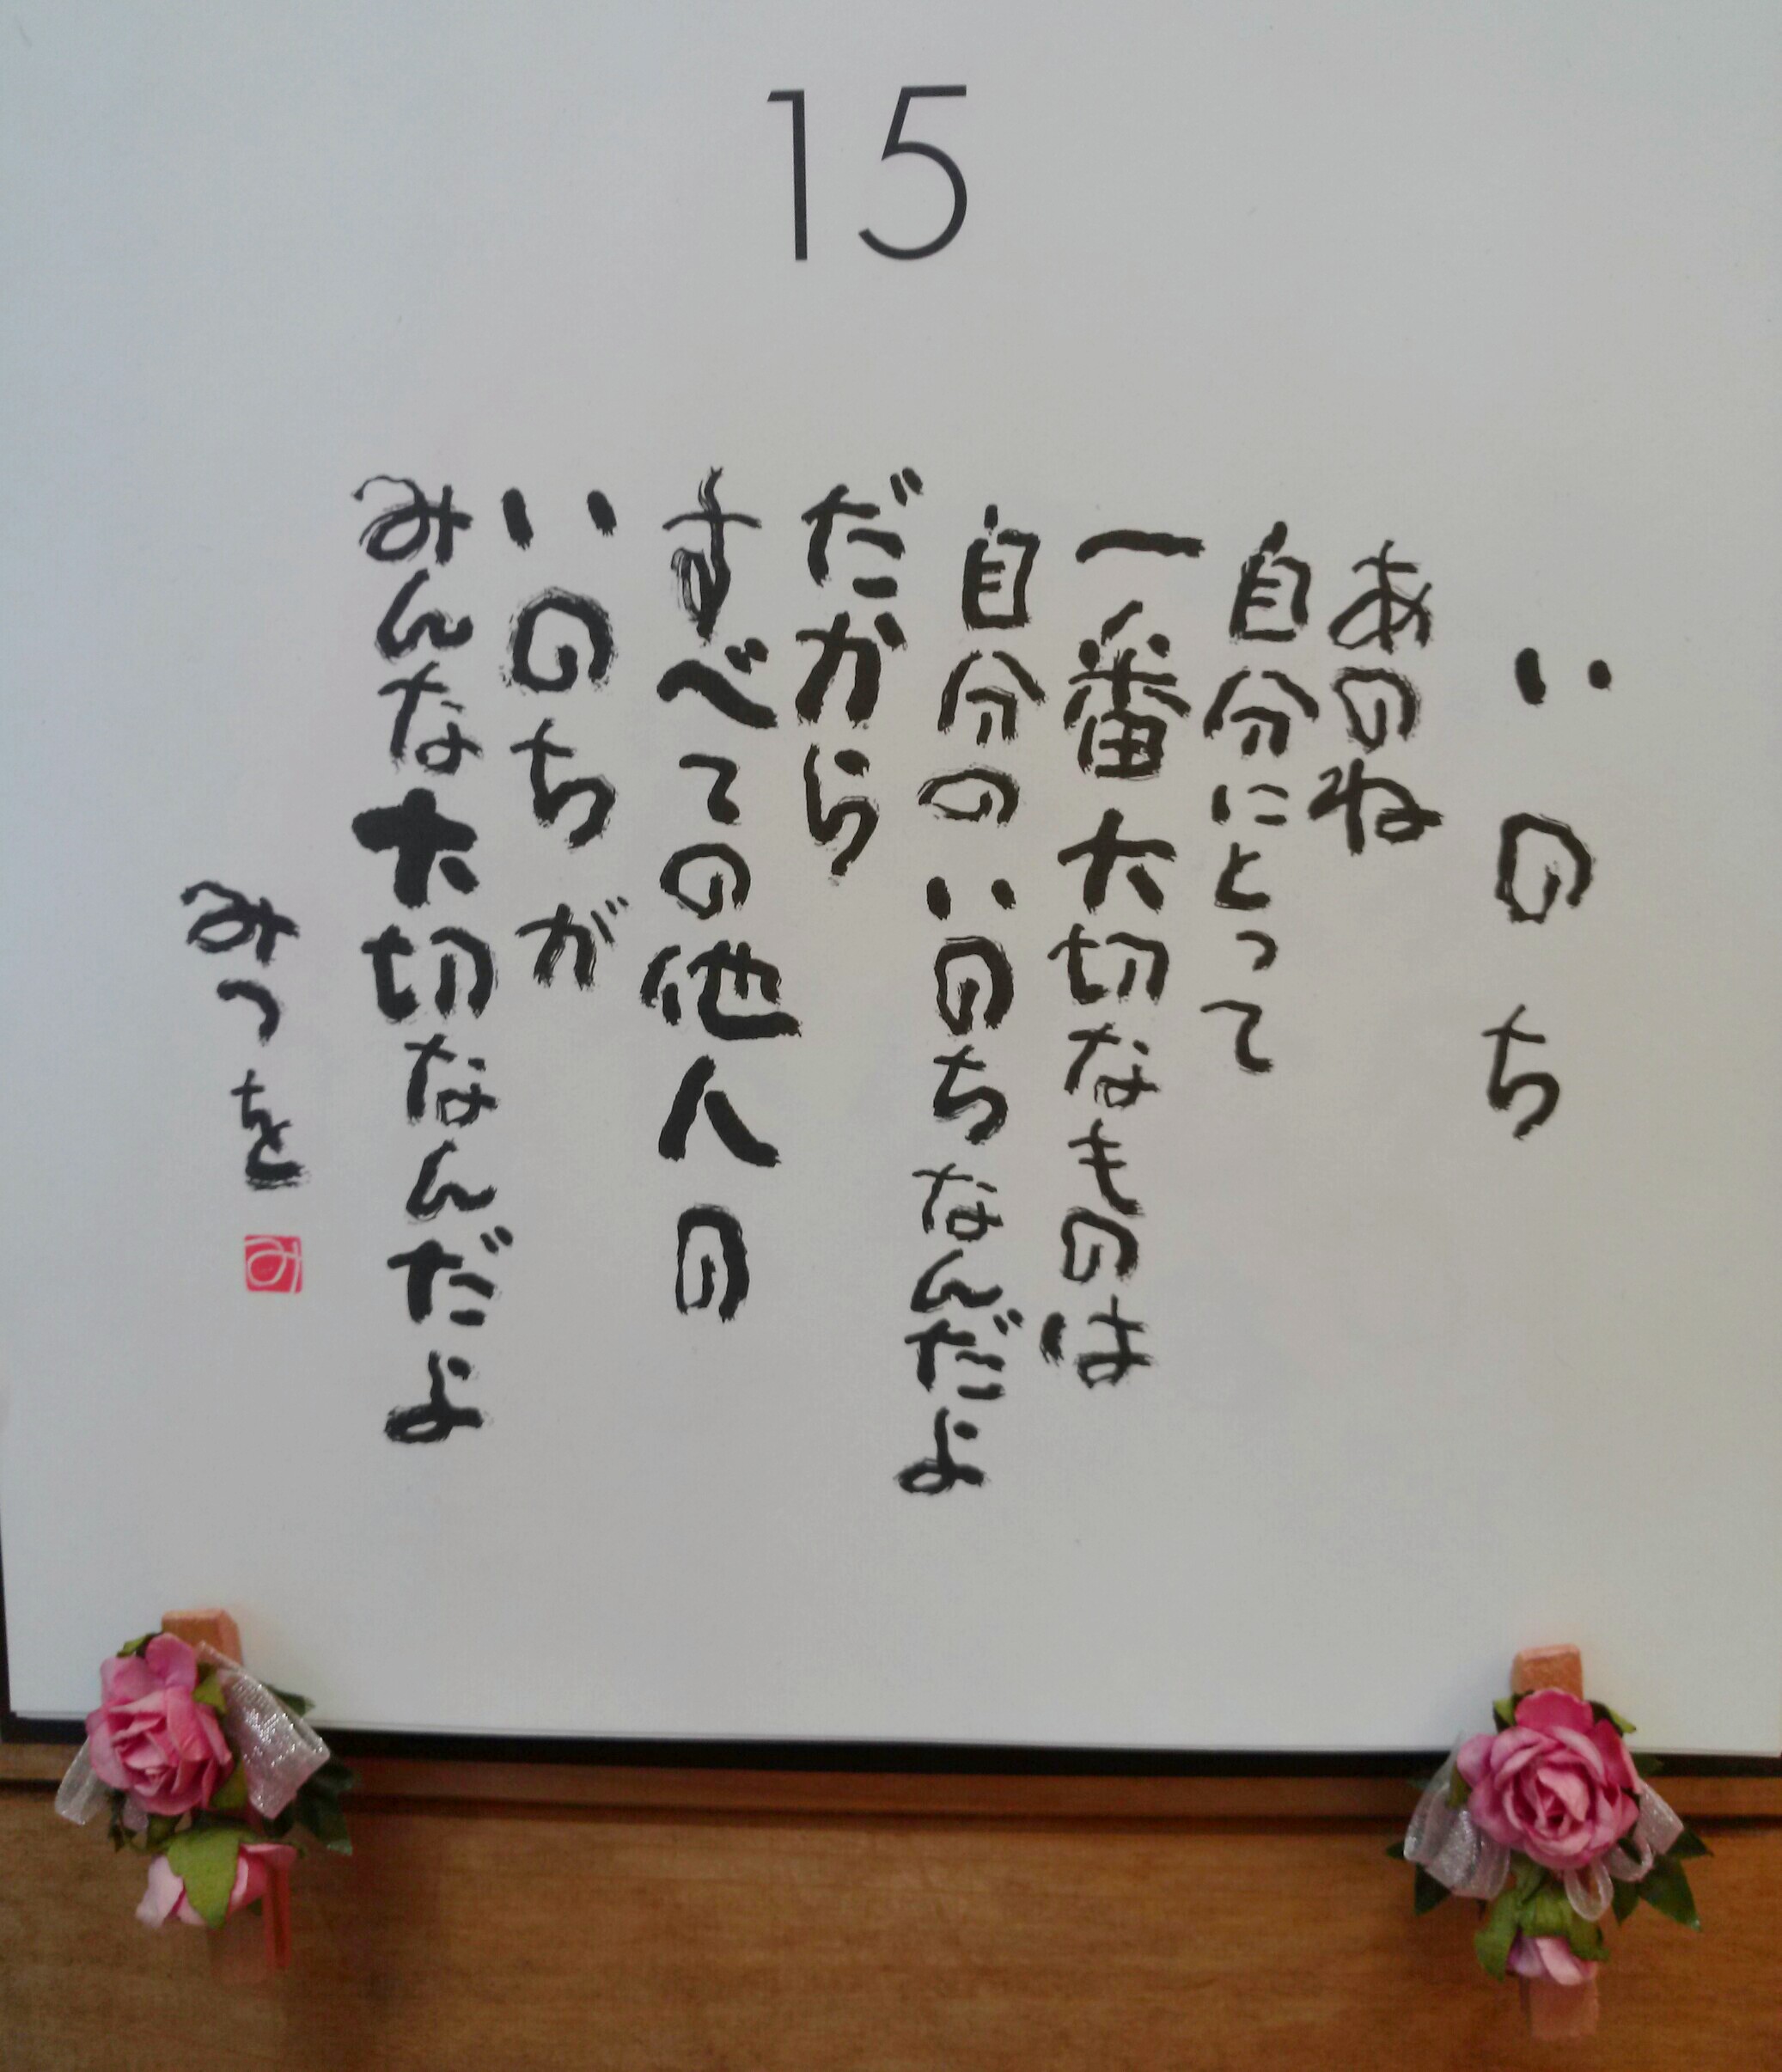 15
いのち
あのね
自分にとって
一番大切なものは
自分のいのちなんだよ
だから
すべての他人の
いのちが
みんな大切なんだよ
みつを
み